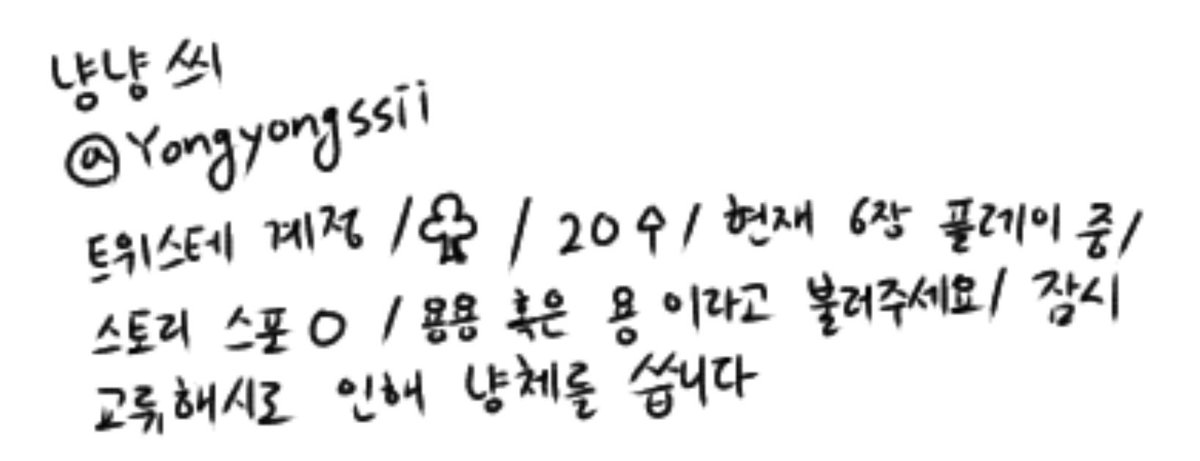 냥냥 씨
@Yongyongssii
트위스테 계정 /♧/ 20↑/ 현재 6장 플레이 중/
스토리 스포O / 용용 혹은 용 이라고 불러주세요/ 잠시
교류해시로 인해 냥체를 씁니다